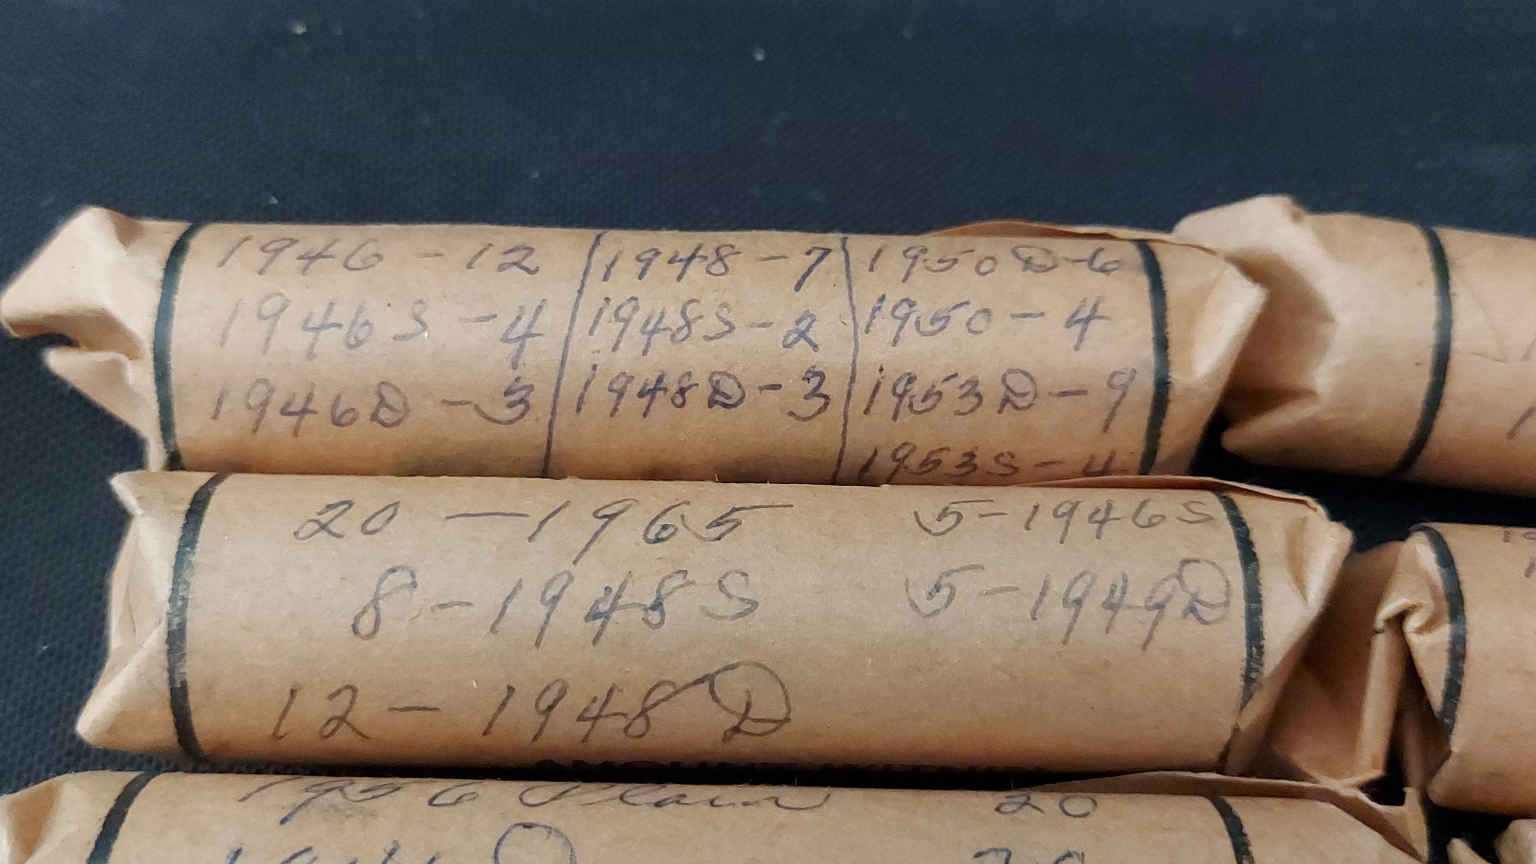 1946 - 12
1946S - 4
1946D - 3
1948 - 7
1948S - 2
1948D - 3
1950D - 6
1950 - 4
1953D - 9
1953S - 4
20 - 1965
8 - 1948S
12 - 1948D
5 - 1946S
5 - 1949D
1956 Plain 20